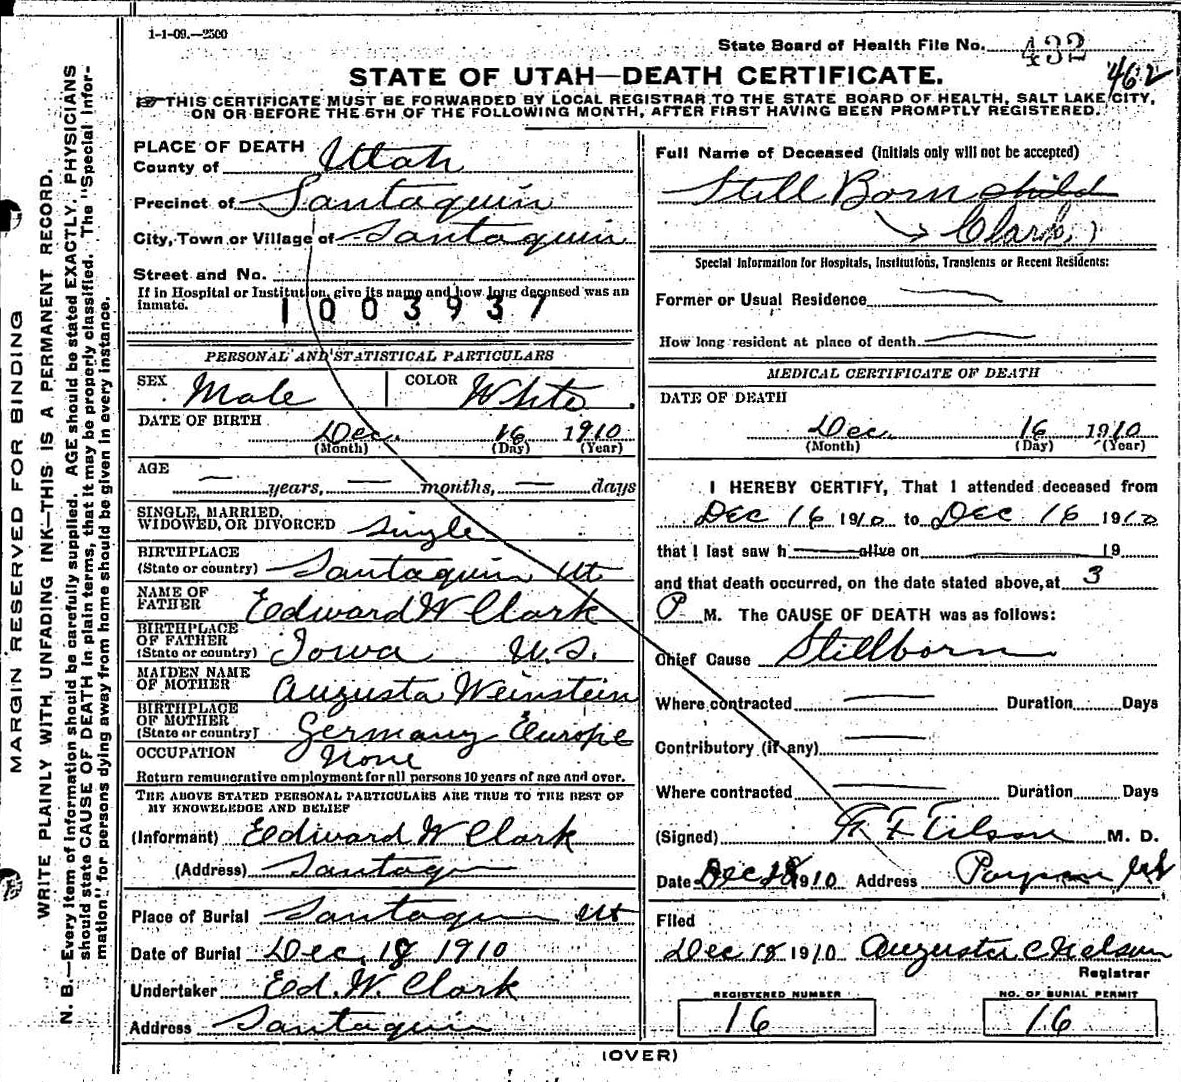 1-1-09.—2500
State Board of Health File No. 432
462
STATE OF UTAH—DEATH CERTIFICATE.
THIS CERTIFICATE MUST BE FORWARDED BY LOCAL REGISTRAR TO THE STATE BOARD OF HEALTH, SALT LAKE CITY,
ON OR BEFORE THE 5TH OF THE FOLLOWING MONTH, AFTER FIRST HAVING BEEN PROMPTLY REGISTERED.
MARGIN RESERVED FOR BINDING
WRITE PLAINLY WITH UNFADING INK—THIS IS A PERMANENT RECORD.
N. B.—Every item of information should be carefully supplied. AGE should be stated EXACTLY, PHYSICIANS
should state CAUSE OF DEATH in plain terms, that it may be properly classified. The "Special Infor-
mation" for persons dying away from home should be given in every instance.
PLACE OF DEATH
County of Utah
Precinct of Santaquin
City, Town or Village of Santaquin
Street and No.
If in Hospital or Institution, give its name and how long deceased was an
inmate.
1003937
PERSONAL AND STATISTICAL PARTICULARS
SEX Male COLOR White
DATE OF BIRTH Dec. 16 1910
(Month) (Day) (Year)
AGE
— years, — months, — days
SINGLE, MARRIED,
WIDOWED, OR DIVORCED single
BIRTHPLACE
(State or country) Santaquin Ut
NAME OF
FATHER Edward W Clark
BIRTHPLACE
OF FATHER
(State or country) Iowa U.S.
MAIDEN NAME
OF MOTHER Augusta Weinstein
BIRTHPLACE
OF MOTHER
(State or country) Germany Europe
OCCUPATION None
Return remunerative employment for all persons 10 years of age and over.
THE ABOVE STATED PERSONAL PARTICULARS ARE TRUE TO THE BEST OF
MY KNOWLEDGE AND BELIEF
(Informant) Edward W Clark
(Address) Santaqn
Place of Burial Santaquin Ut
Date of Burial Dec. 18 1910
Undertaker Ed. W. Clark
Address Santaquin
Full Name of Deceased (Initials only will not be accepted)
Still Born child
Clark
Special Information for Hospitals, Institutions, Transients or Recent Residents:
Former or Usual Residence —
How long resident at place of death —
MEDICAL CERTIFICATE OF DEATH
DATE OF DEATH
Dec. 16 1910
(Month) (Day) (Year)
I HEREBY CERTIFY, That I attended deceased from
Dec 16 1910 to Dec 16 1910
that I last saw h alive on 19
and that death occurred, on the date stated above, at 3
P M. The CAUSE OF DEATH was as follows:
Chief Cause Stillborn
Where contracted — Duration Days
Contributory (if any) —
Where contracted — Duration Days
(Signed) Tilson M. D.
Date Dec 1910 Address Payson Ut
Filed
Dec 18 1910 Augusta C Nelson
Registrar
REGISTERED NUMBER
16
NO. OF BURIAL PERMIT
16
(OVER)